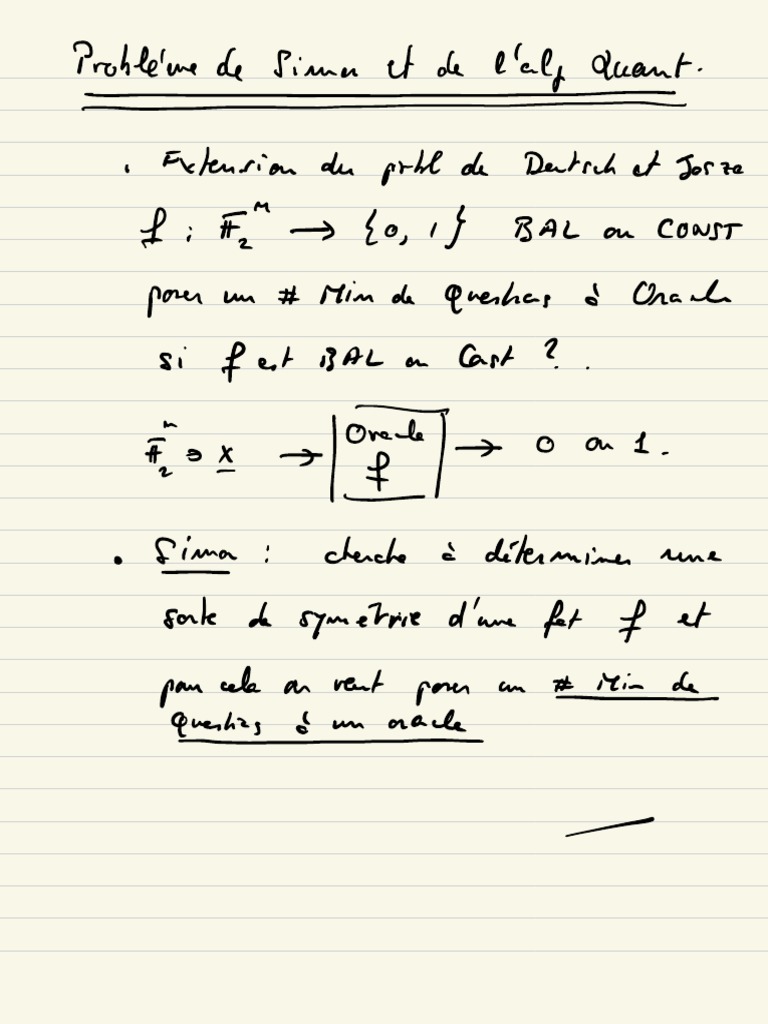 Problème de Simon et de l'alg Quant.
• Extension du probl de Deutsch et Josza
f : 𝔽₂ⁿ → {0, 1} BAL ou CONST
poser un # Min de Questions à Oracle
si f est BAL ou Cast ? .
𝔽₂ⁿ ∋ x → Oracle f → 0 ou 1.
• Simon : cherche à déterminer une
sorte de symetrie d'une fct f et
pour cela on veut poser un # Min de
Questions à un oracle